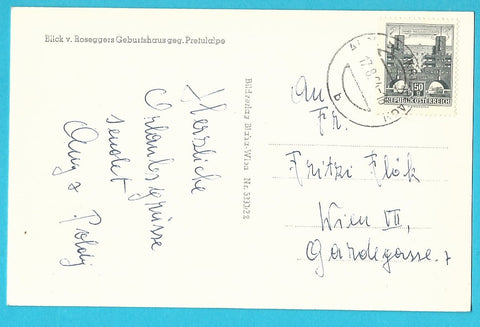 Blick v. Roseggers Geburtshaus geg. Pretulalpe
Herzliche
Urlaubsgrüsse
sendet
Poldy
Bildverlag Wien Nr. 5330/22
50
REPUBLIK ÖSTERREICH
b
An
Fr.
Fritzi Flök
Wien VII,
Gardegasse. 7